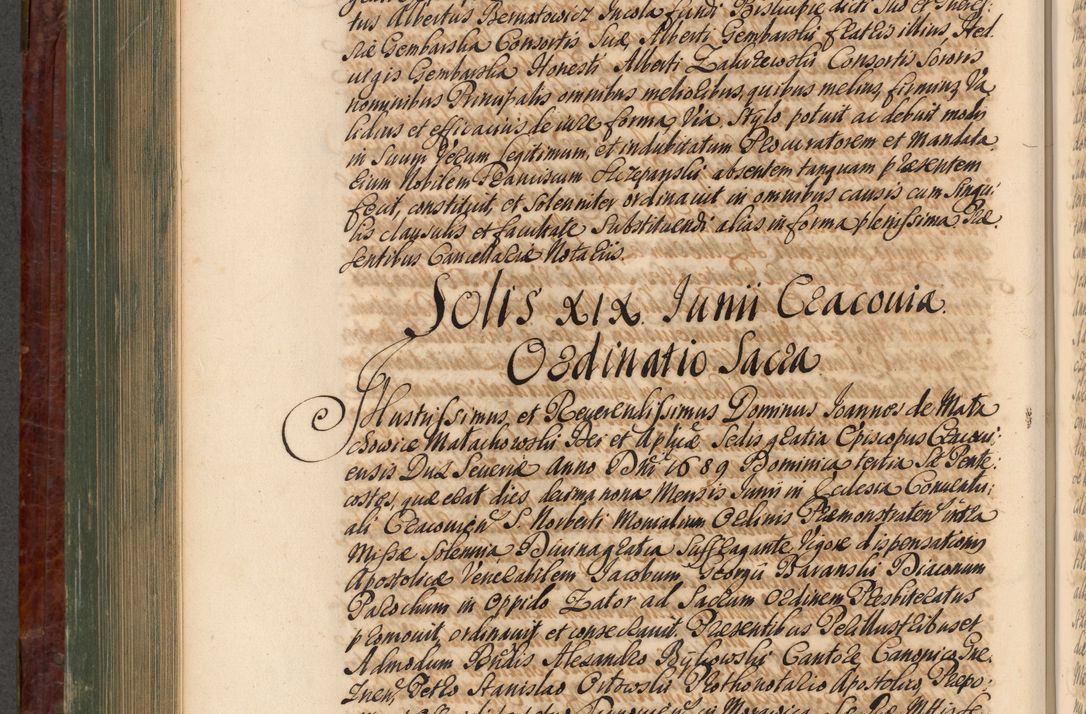 tus Albertus Bernatowicz Incola fundi Biskupie dicti suo et Agnetis
siæ Gembarska Consortis suæ, Alberti Gembarski fratris illius, Hed
uigis Gembarska Honesti Alberti Zakrzewski Consortis Sororis
nominibus Principalis omnibus melioribus, quibus melius, firmius, Va
lidius et efficacius de iure forma, Via, Stylo potuit ac debuit modis
in Suum Verum legitimum, et indubitatum Procuratorem et Mandata
rium Nobilem Franciscum absentem tanquam præsentem
fecit, constituit, et Solenniter ordinauit in omnibus causis cum singu
lis clausulis et facultate Substituendi alias in forma plenissima Præ
sentibus Cancellariæ Notariis.
Solis XIX. Iunii Cracouiæ.
Ordinatio Sacra
Illustrissimus et Reuerendissimus Dominus Ioannes de Mala
chowice Malachowski Dei et Aplicæ Sedis gratia Episcopus Cracoui:
ensis Dux Seueriæ Anno Dni 1689 Dominica tertia Post Pente:
costes, quæ erat dies decima nona Mensis Iunii in Ecclesia Conuentu:
ali Cracouien S. Norberti Monialium Ordinis Præmonstraten intra
Missæ Solennia, Diuina gratia Suffragante, Vigore dispensationis
Apostolicæ Venerabilem Iacobum Georgii Baranski Diaconum
Parochum in Oppido Zator ad Sacrum Ordinem Præsbiteratus
promouit, ordinauit et consecrauit. Præsentibus Perillustribus et
Admodum Rndis Alexandro Bykowski Cantore, Canonico Gne:
znen, Petro Stanislao Orłowski Prothonotario Apostolico, Præpo: